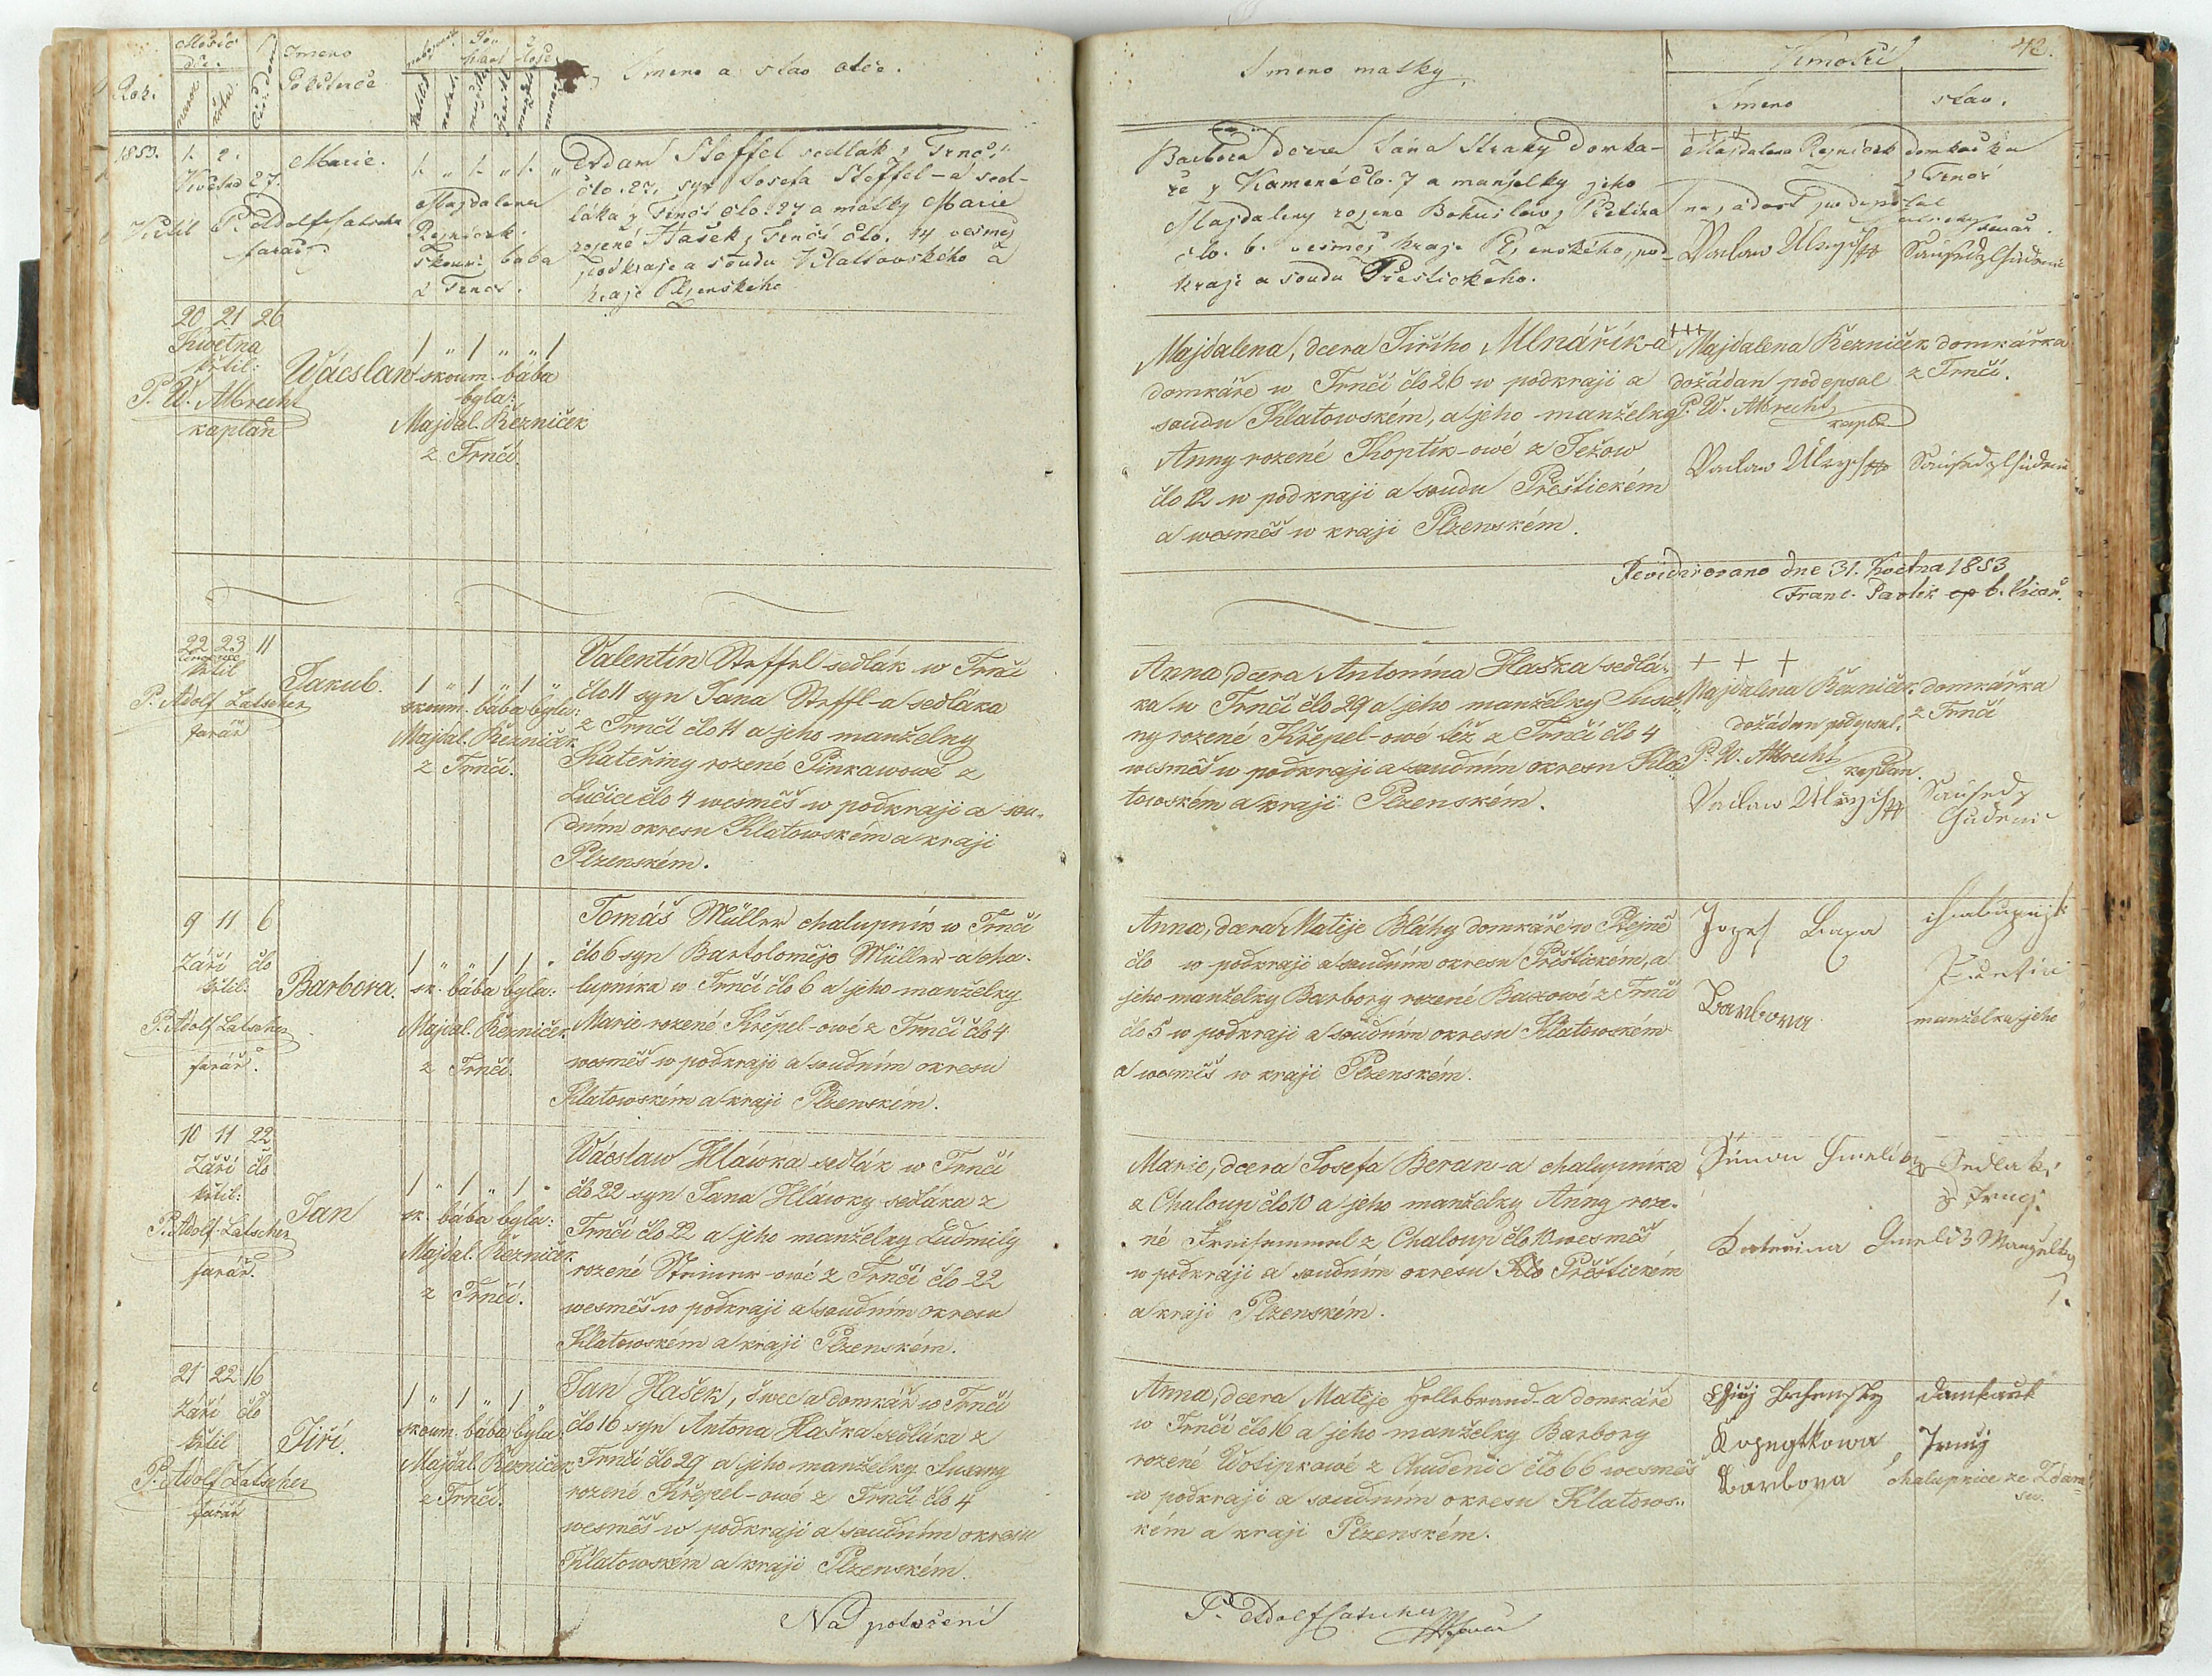 42.
Rok.
Měsíc
dne.
naroz.
křtu
Čís. domu
Imeno
Pokřtěnce
Imeno a stav otce.
Imeno matky.
Kmotři
Imeno
stav.
1853.
1. 2.
Května 27.
Křtil P. Adolf Latscher
farář
Marie.
1. „ 1. „ 1. „
Majdalena
Rezniček
zkouš. bába
z Trnčí.
Adam Steffel sedlák z Trnčí
člo. 27, syn Josefa Steffel-a sed-
láka z Trnčí člo. 27 a matky Marie
rozené Hašek z Trnčí člo. 14 vesměs
podkraje a soudu Klattovského a
kraje Plzenského
Barbora dcera Jana Straky domka-
ře z Kamené člo. 7 a manželky jeho
Majdaleny rozené Bohuslav z Přetína
člo. 6. vesměs kraje Plzenského, pod-
kraje a soudu Přestického.
+++
Majdalena Rezniček domkařka
z Trnčí
Vaclav Ulrych
20 21 26
Května
křtil:
P. W. Albrecht
kaplan
Wácslaw
1 „ 1 „ „ 1
skoum. bába
byla:
Majdal. Řezniček
z Trnčí.
Majdalena, dcera Jiřího Mlnářík-a
domkáře w Trnčí člo 26 w podkraji a
soudu Klatowském, a jeho manželky
Anny rozené Koptik-owé z Ježow
člo 12 w podkraji a soudu Přeštickém
a wesměs w kraji Plzenském.
+++
Majdalena Řezniček domkářka
z Trnčí.
dožádan podepsal
P. W. Albrecht,
kaplan
Vaclaw Ulrych
Revidirovano dne 31. Května 1853
Franc. Pavlík b. Vicář.
22 23 11
července
křtil
P. Adolf Latscher
farář
Jakub.
1 „ 1 „ 1 „
skoum. bába byla:
Majdal. Řezniček
z Trnčí.
Valentin Steffel sedlák w Trnčí
člo 11 syn Jana Steffl-a sedláka
z Trnčí člo 11 a jeho manželky
Kateřiny rozené Pinkawowé z
Lučice člo 4 wesměs w podkraji a sou-
dním okresu Klatowském a kraji
Plzenském.
Anna, dcera Antonína Haška sedlá-
ka w Trnčí člo 29 a jeho manželky Susa-
ny rozené Křepel-owé též z Trnčí člo 4
wesměs w podkraji a soudním okresu Kla-
towském a kraji Plzenském.
+ + +
Majdalena Řezniček domkářka
z Trnčí
dožádan podepsal.
P. W. Albrecht
kaplan.
Vaclaw Ulrych
9 11 6
Září člo
křtil:
P. Adolf Latscher
farář.
Barbora.
1 „ „ 1 1 „
sk. bába byla:
Majdal. Řezniček
z Trnčí.
Tomáš Müller chalupník w Trnčí
člo 6 syn Bartoloměje Müller-a cha-
lupníka w Trnčí člo 6 a jeho manželky
Marie rozené Křepel-owé z Trnčí člo 4
wesměs w podkraji a soudním okresu
Klatowském a kraji Plzenském.
Anna, dcera Matěje Bláhy domkáře w Ptejně
člo w podkraji a soudním okresu Přeštickém, a
jeho manželky Barbory rozené Baxowé z Trnčí
člo 5 w podkraji a soudním okresu Klatowském
a wesměs w kraji Plzenském.
Jozef Baxa
Barbora
manželka jeho
10 11 22
Září člo
křtil:
P. Adolf Latscher
farář.
Jan
1 „ 1 „ 1 „
sk. bába byla:
Majdal. Řezniček
z Trnčí.
Wácslaw Hlawka sedlák w Trnčí
člo 22 syn Jana Hláwky sedláka z
Trnčí člo 22 a jeho manželky Ludmily
rozené Steiner-owé z Trnčí člo 22
wesměs w podkraji a soudním okresu
Klatowském a kraji Plzenském.
Marie, dcera Josefa Beran-a chalupníka
z Chaloup člo 10 a jeho manželky Anny roze-
né z Chaloup člo 10 wesměs
w podkraji a soudním okresu Přeštickém
a kraji Plzenském.
Šimon
Kateřina
21 22 16
Září člo
křtil
P. Adolf Latscher
farář
Jiří.
1 „ 1 „ 1 „
skoum. bába byla
Majdal. Řezniček
z Trnčí.
Jan Hašek, šwec a domkář w Trnčí
člo 16 syn Antona Haška sedláka z
Trnčí člo 29 a jeho manželky Susany
rozené Křepel-owé z Trnčí člo 4
wesměs w podkraji a soudním okresu
Klatowském a kraji Plzenském.
Anna, dcera Matěje Hellebrand-a domkáře
w Trnčí člo 16 a jeho manželky Barbory
rozené Wotipkowé z Chudenic člo 66 wesměs
w podkraji a soudním okresu Klatows-
kém a kraji Plzenském.
Barbora chalupnice ze
Na potvrzení
P. Adolf Latscher
farář